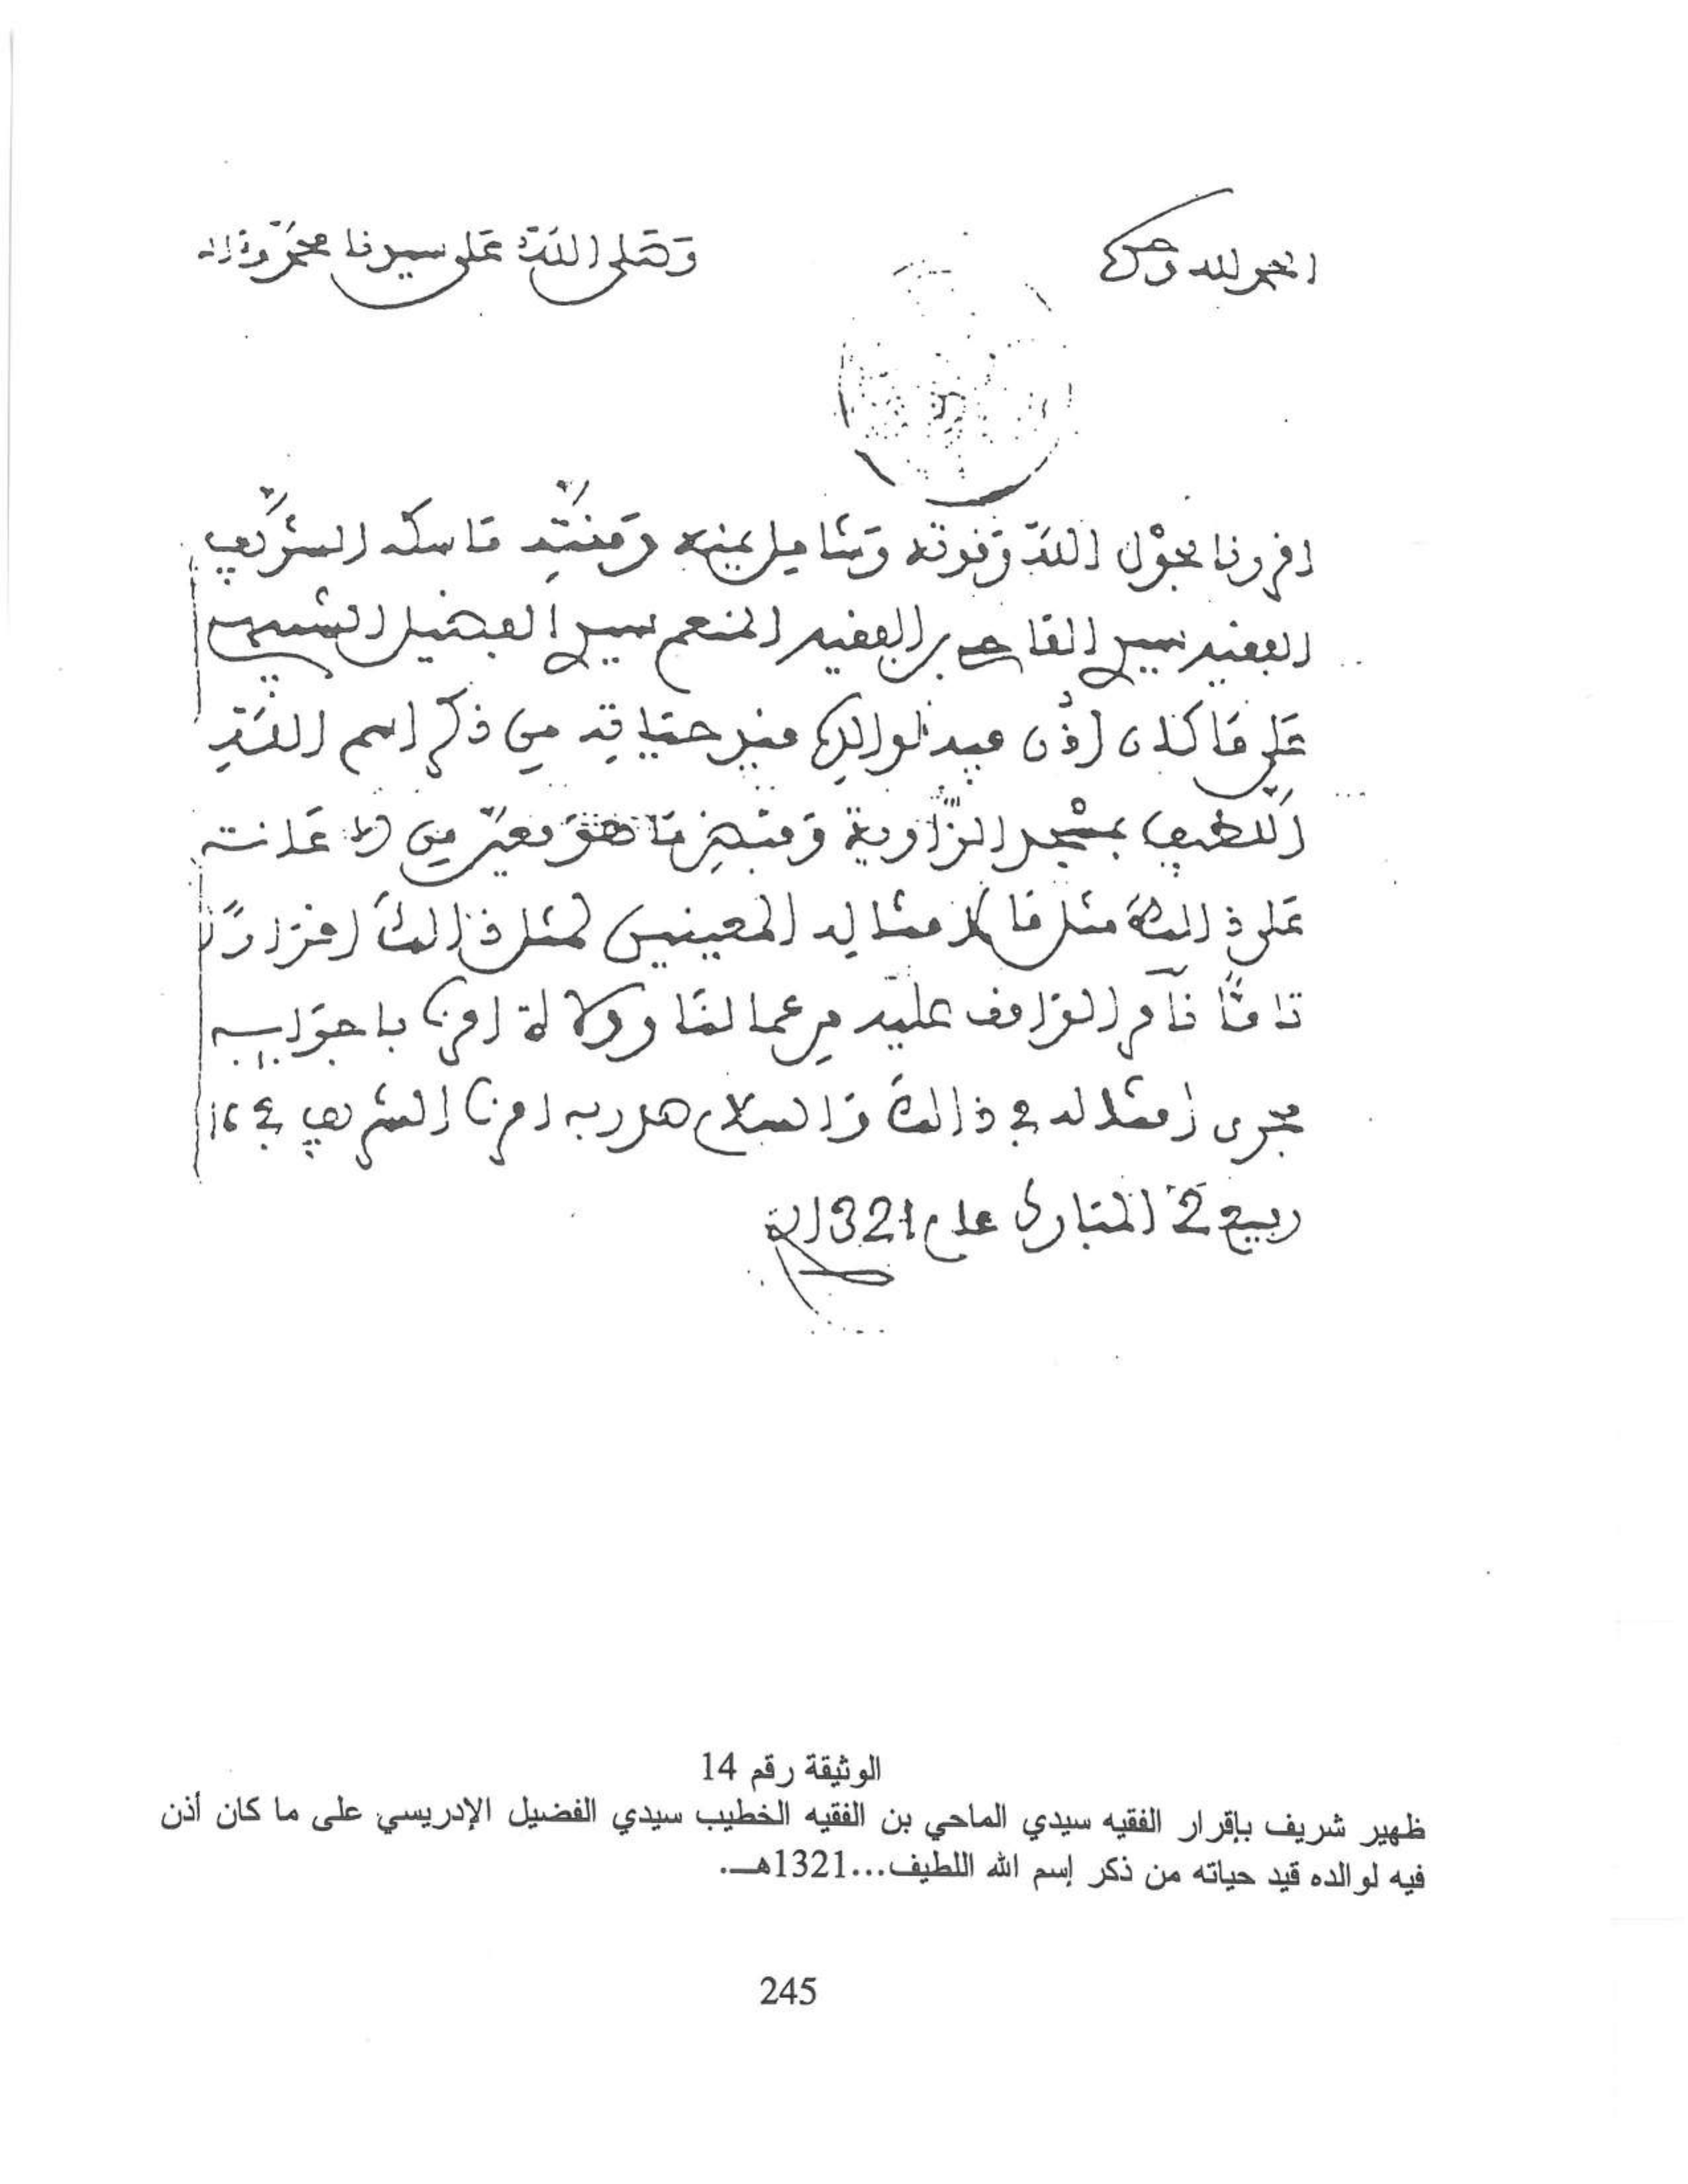 الحمد لله وحده
وصلى الله على سيدنا محمد وءاله
اقررنا بحول الله وقوته وشامل يمنه ومنته ماسكه الشريف
الفقيه سيدي الماحي بن الفقيه المنعم سيدي الفضيل
على ما كان أذن فيه لوالده قيد حياته من ذكر اسم الله
اللطيف بمسجد الزاوية وقبض ما هو معين من الاعانة
على ذالك مثل ما لامثاله المعينين لمثل ذالك اقرارا
تاما نامر الواقف عليه من عمالنا وولاة امرنا باجرايه
مجرى امثاله في ذالك والسلام صدر به امرنا الشريف في 16
ربيع 2 المبارك عام 1321
الوثيقة رقم 14
ظهير شريف بإقرار الفقيه سيدي الماحي بن الفقيه الخطيب سيدي الفضيل الإدريسي على ما كان أذن
فيه لوالده قيد حياته من ذكر إسم الله اللطيف...1321هـ.
245